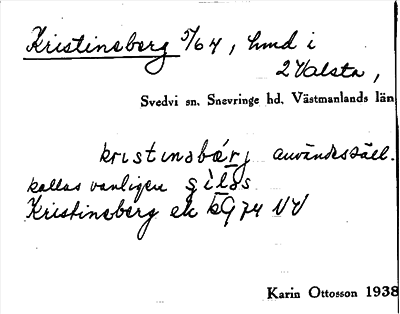 Kristinsberg 5/64, hmd i
2 Valsta,
Svedvi sn. Snevringe hd. Västmanlands län
kristinsbærj användes säll.
kallas vanligen
Kristinsberg ek 74 NV
Karin Ottosson 1938